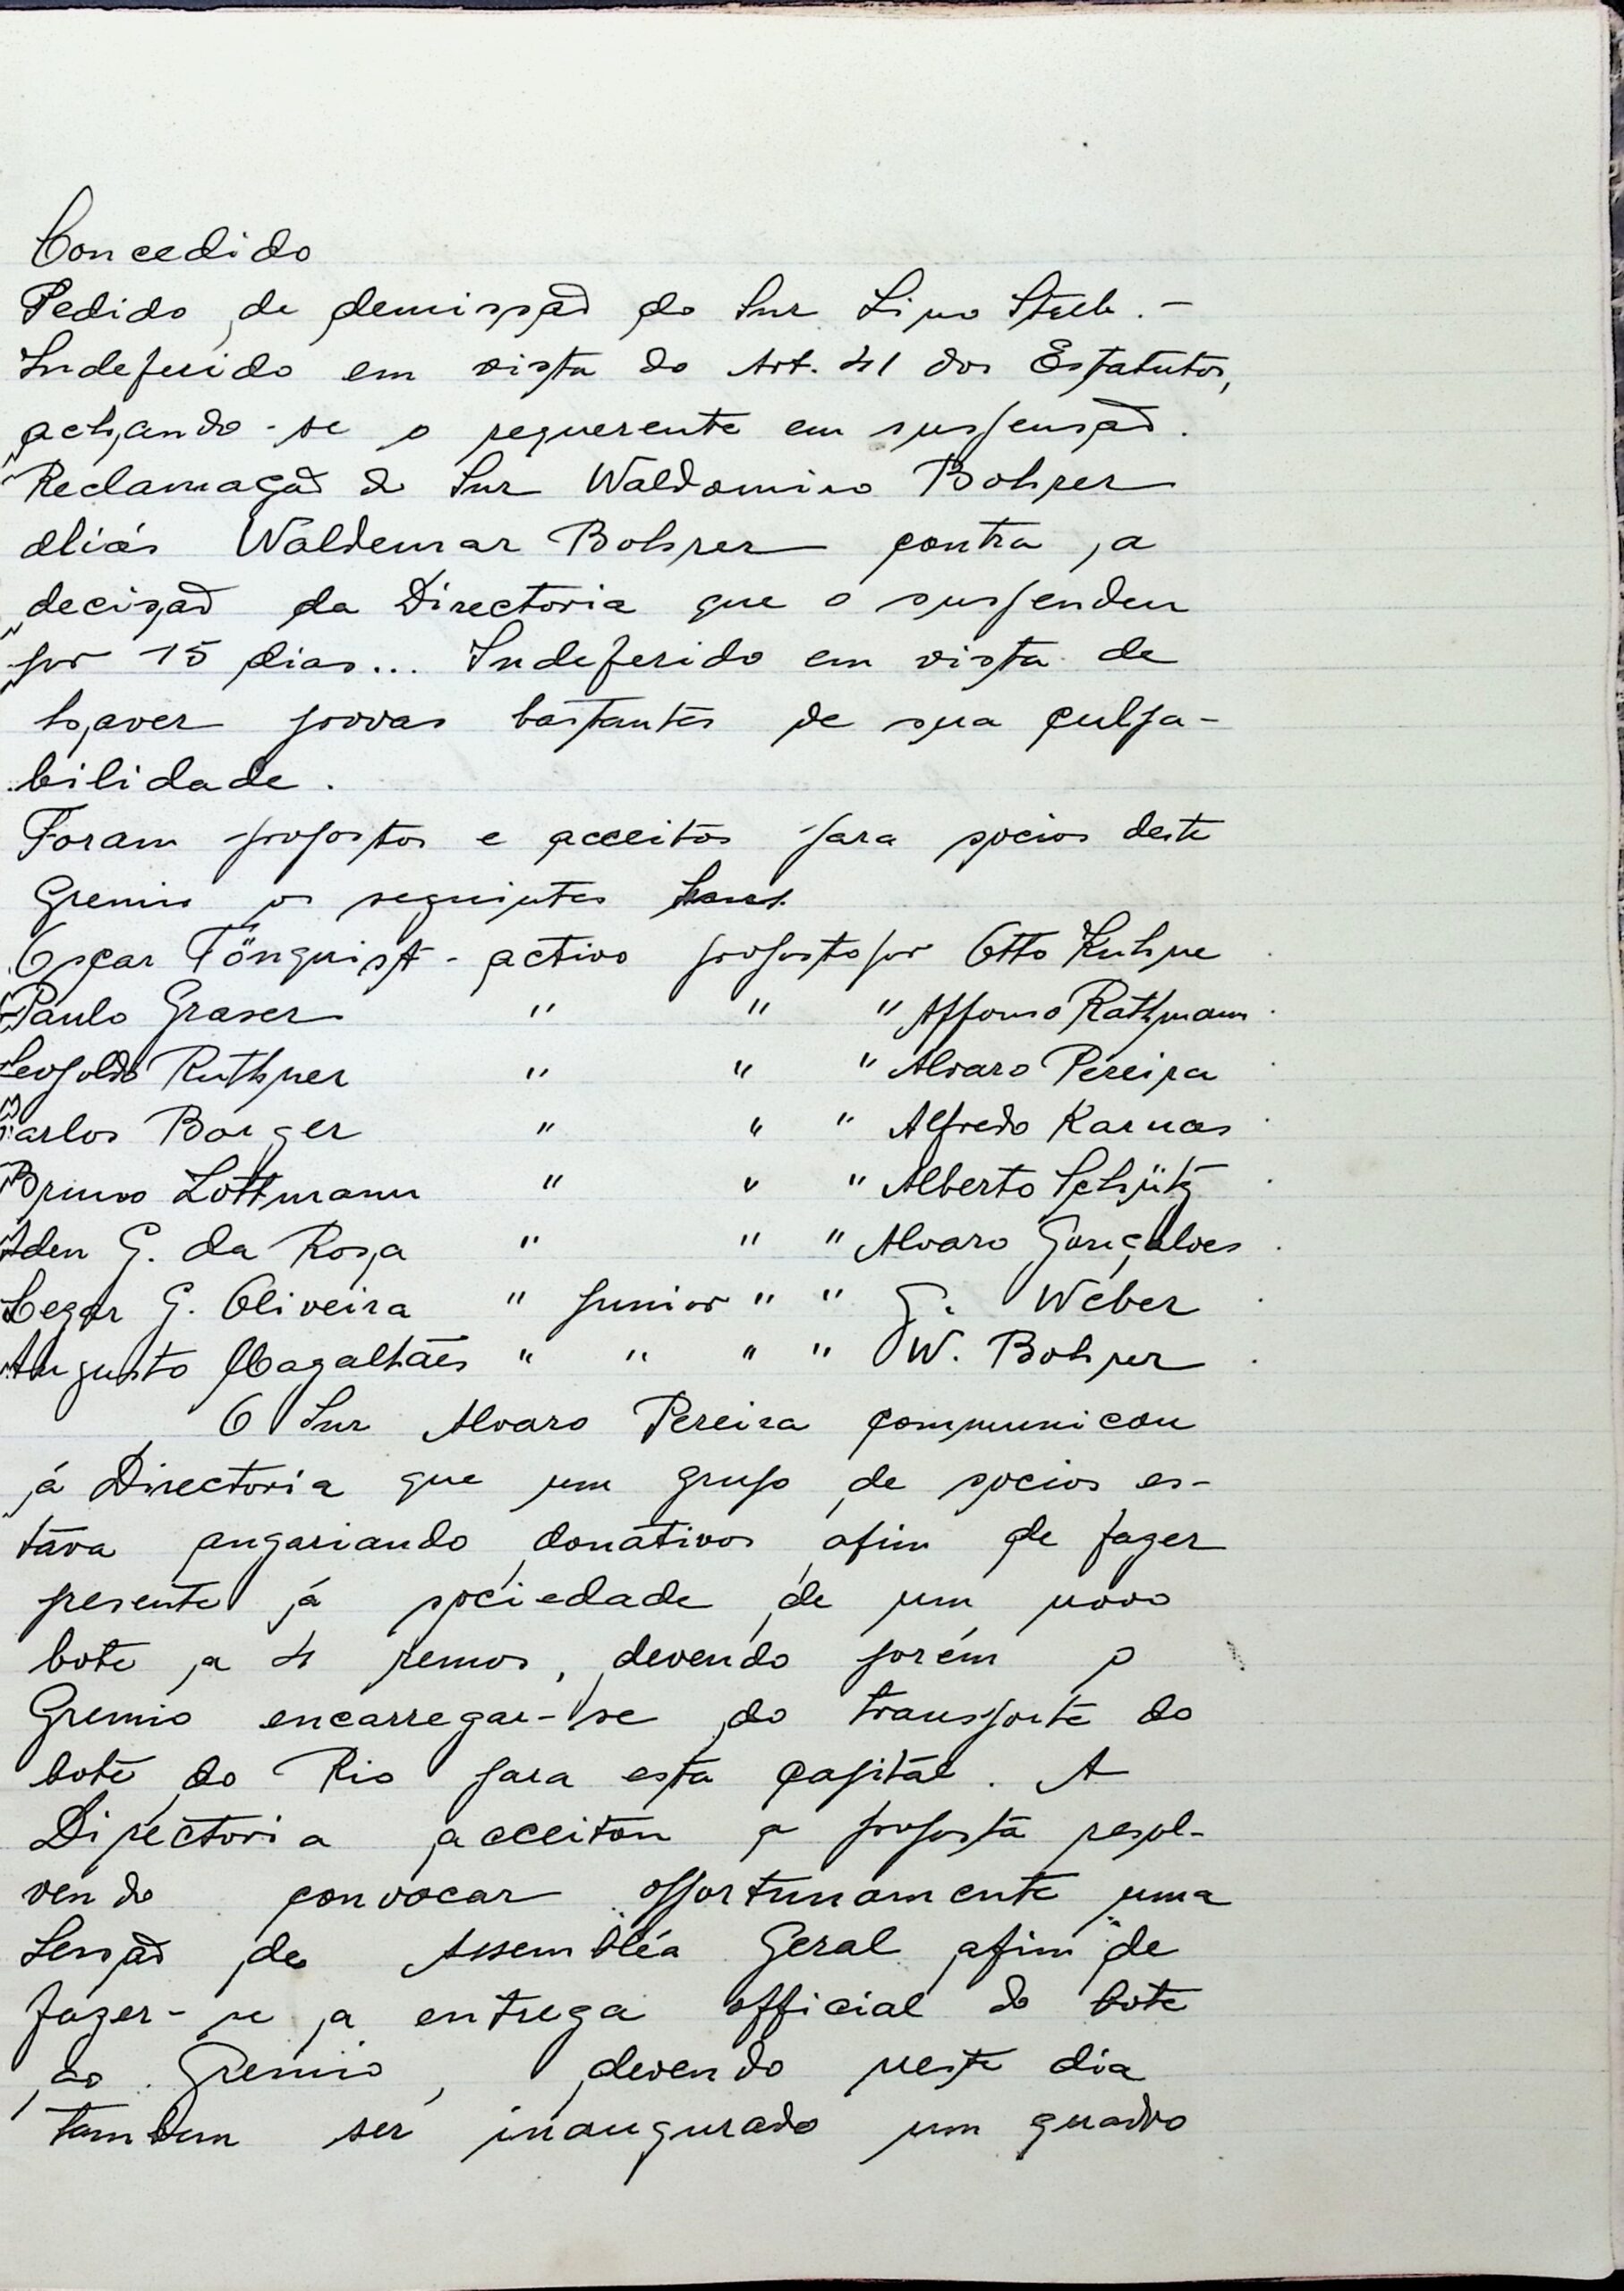 Concedido
Pedido de demissão do Snr Lino Steeb. -
Indeferido em vista do Art. 41 dos Estatutos,
achando-se o requerente em suspensão.
Reclamação do Snr Waldomiro Bohrer
aliás Waldemar Bohrer contra a
decisão da Directoria que o suspendeu
por 15 dias... Indeferido em vista de
haver provas bastantes de sua culpa-
bilidade.
Foram propostos e acceitos para socios deste
Gremio os seguintes Snrs.
Oscar Tönquist - activo proposto por Otto Kuhne
Paulo Graser " " " Affonso Rathmann
Leopoldo Ruthner " " " Alvaro Pereira
Carlos Borger " " " Alfredo Karnas
Bruno Lottmann " " " Alberto Schütz
Aden G. da Rosa " " " Alvaro Gonçalves
Cezar G. Oliveira " junior " " G. Weber
Augusto Magalhães " " " " W. Bohrer
O Snr Alvaro Pereira communicou
á Directoria que um grupo de socios es-
tava angariando donativos afim de fazer
presente á sociedade de um novo
bote a 4 remos, devendo porém o
Gremio encarregar-se do transporte do
bote do Rio para esta capital. A
Directoria acceitou a proposta resol-
vendo convocar opportunamente uma
Sessão de Assembléa Geral afim de
fazer-se a entrega official do bote
ao Gremio, devendo neste dia
tambem ser inaugurado um quadro